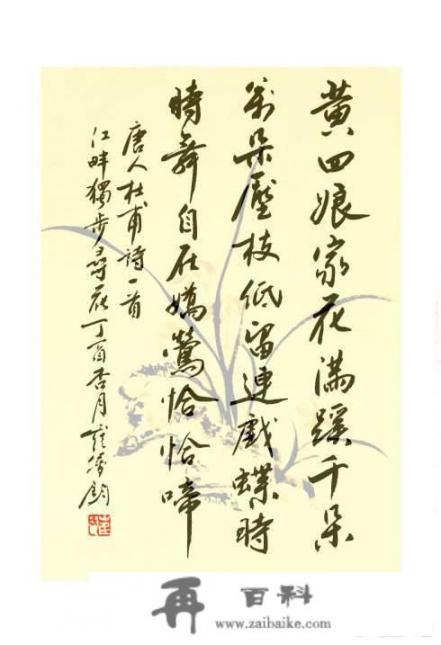 黄四娘家花満蹊千朵
萬朵壓枝低留連戲蝶時
時舞自在嬌鶯恰恰啼
唐人杜甫詩一首
江畔獨步尋花丁酉杏月
再 百科
www.zaibaike.com